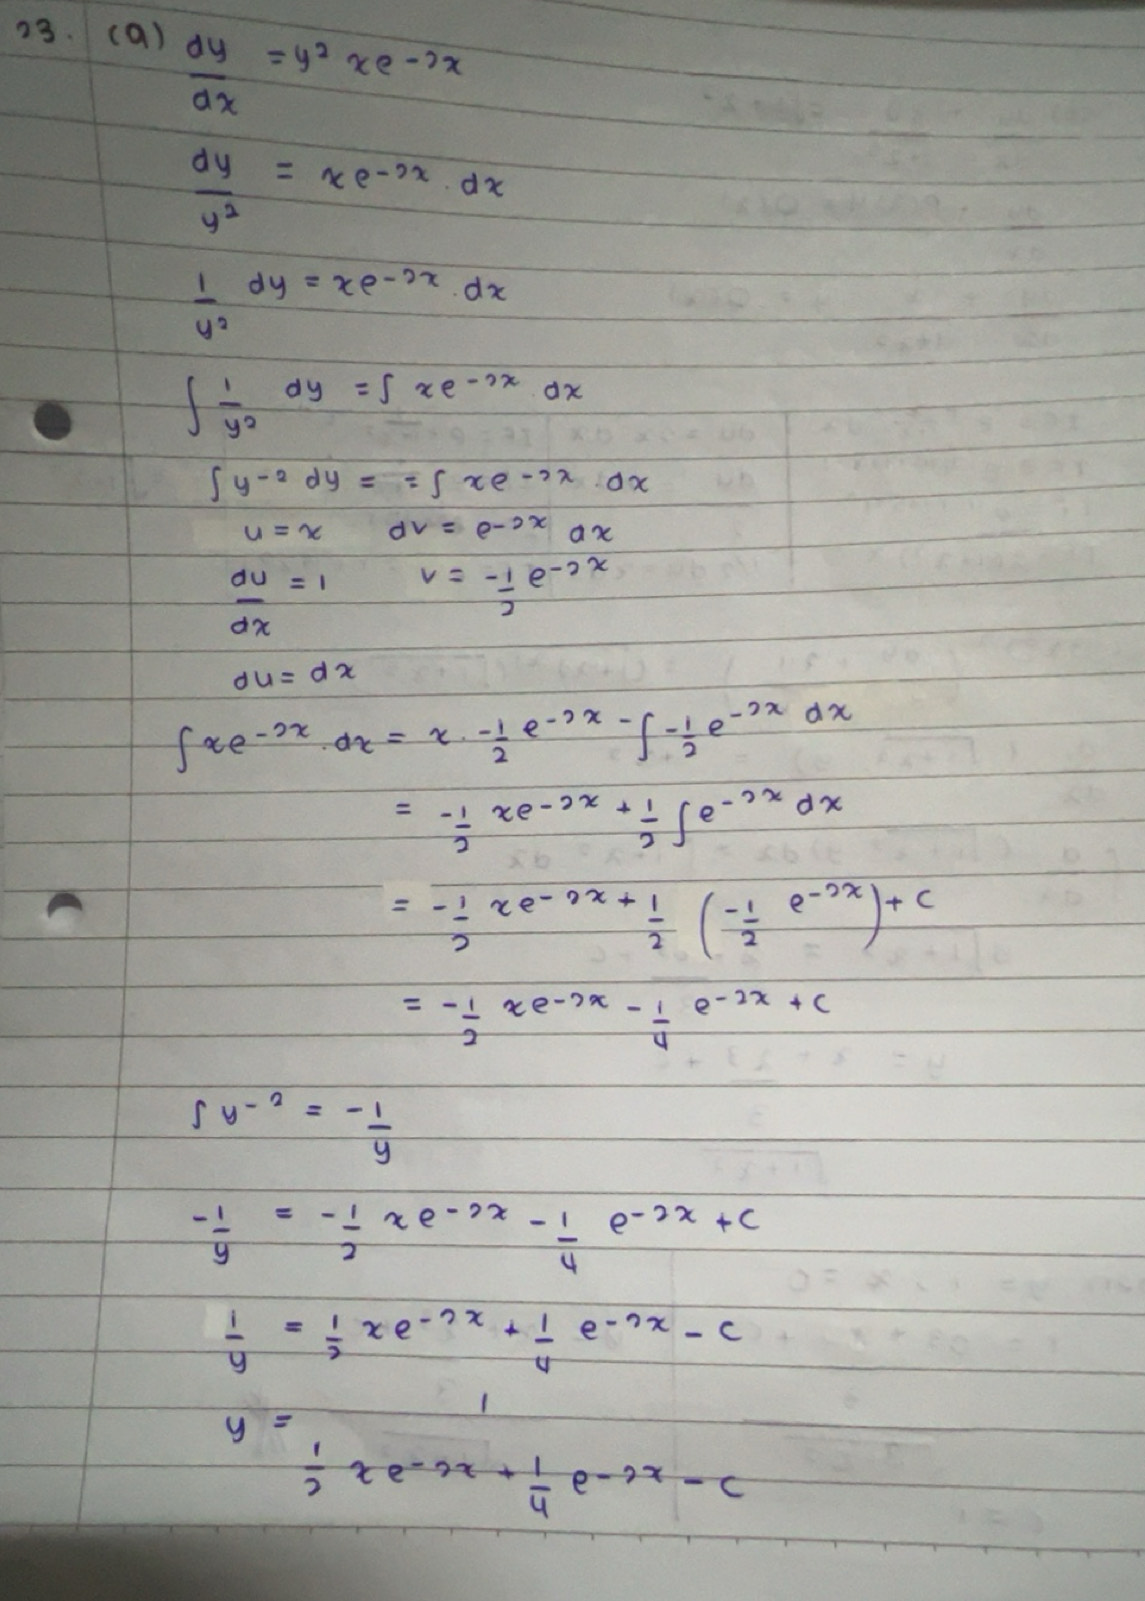 23. (a) dy/dx = y² xe^-2x
dy/y² = xe^-2x . dx
1/y² dy = xe^-2x . dx
∫ 1/y² dy = ∫ xe^-2x . dx
∫ y^-2 dy = = ∫ xe^-2x . dx
u = x dv = e^-2x dx
du/dx = 1 v = -1/2 e^-2x
du = dx
∫ xe^-2x . dx = x . -1/2 e^-2x - ∫ -1/2 e^-2x dx
= -1/2 xe^-2x + 1/2 ∫ e^-2x dx
= -1/2 xe^-2x + 1/2 (-1/2 e^-2x) + c
= -1/2 xe^-2x - 1/4 e^-2x + c
∫ y^-2 = -1/y
-1/y = -1/2 xe^-2x - 1/4 e^-2x + c
1/y = 1/2 xe^-2x + 1/4 e^-2x - c
y = 1 / (1/2 xe^-2x + 1/4 e^-2x - c)